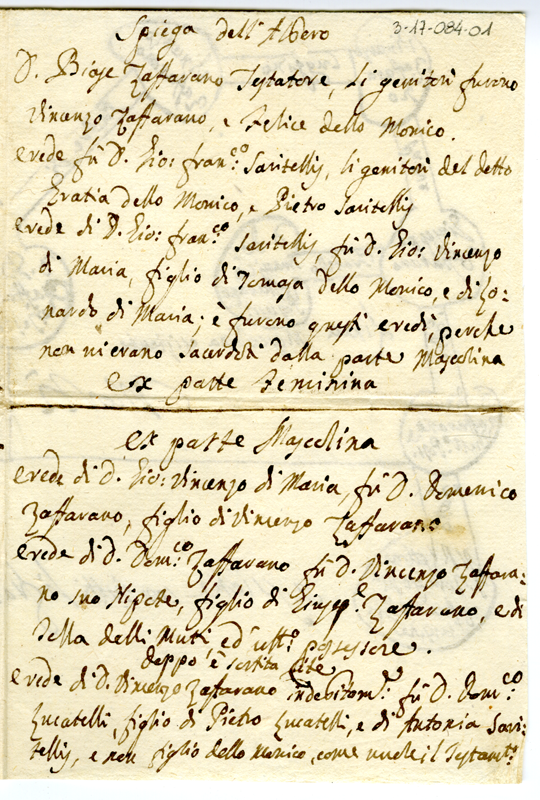 Spiega dell'Albero
3-17-084-01
D. Biase Zaffarano Testatore, li genitori furono
Vincenzo Zaffarano, e Felice dello Monico.
erede fù D. Gio: Fran:co Savitellis, li genitori del detto
Gratia dello Monico, e Pietro Savitellis
erede di D. Gio: Fran:co Savitellis, fù D. Gio: Vincenzo
di Maria, figlio di Tomasa dello Monico, e di Lo:
nardo di Maria; è furono questi eredi, perche
non vi erano Sacerdoti dalla parte Mascolina
ex parte Feminina
ex parte Mascolina
erede di D. Gio: Vincenzo di Maria, fù D. Domenico
Zaffarano, figlio di Vincenzo Zaffarano
erede di D. Dom:co Zaffarano fù D. Vincenzo Zaffara:
no suo Nipote, figlio di Giusep:e Zaffarano, e di
Sella delli Muti ed ult:o possessore.
deppo è sortita lite
erede di D. Vincenzo Zaffarano indebitam:e fù D. Dom:co
Lucatelli figlio di Pietro Lucatelli, e di Antonia Savi:
tellis, e non figlio dello Monico, come vuole il Testam:to